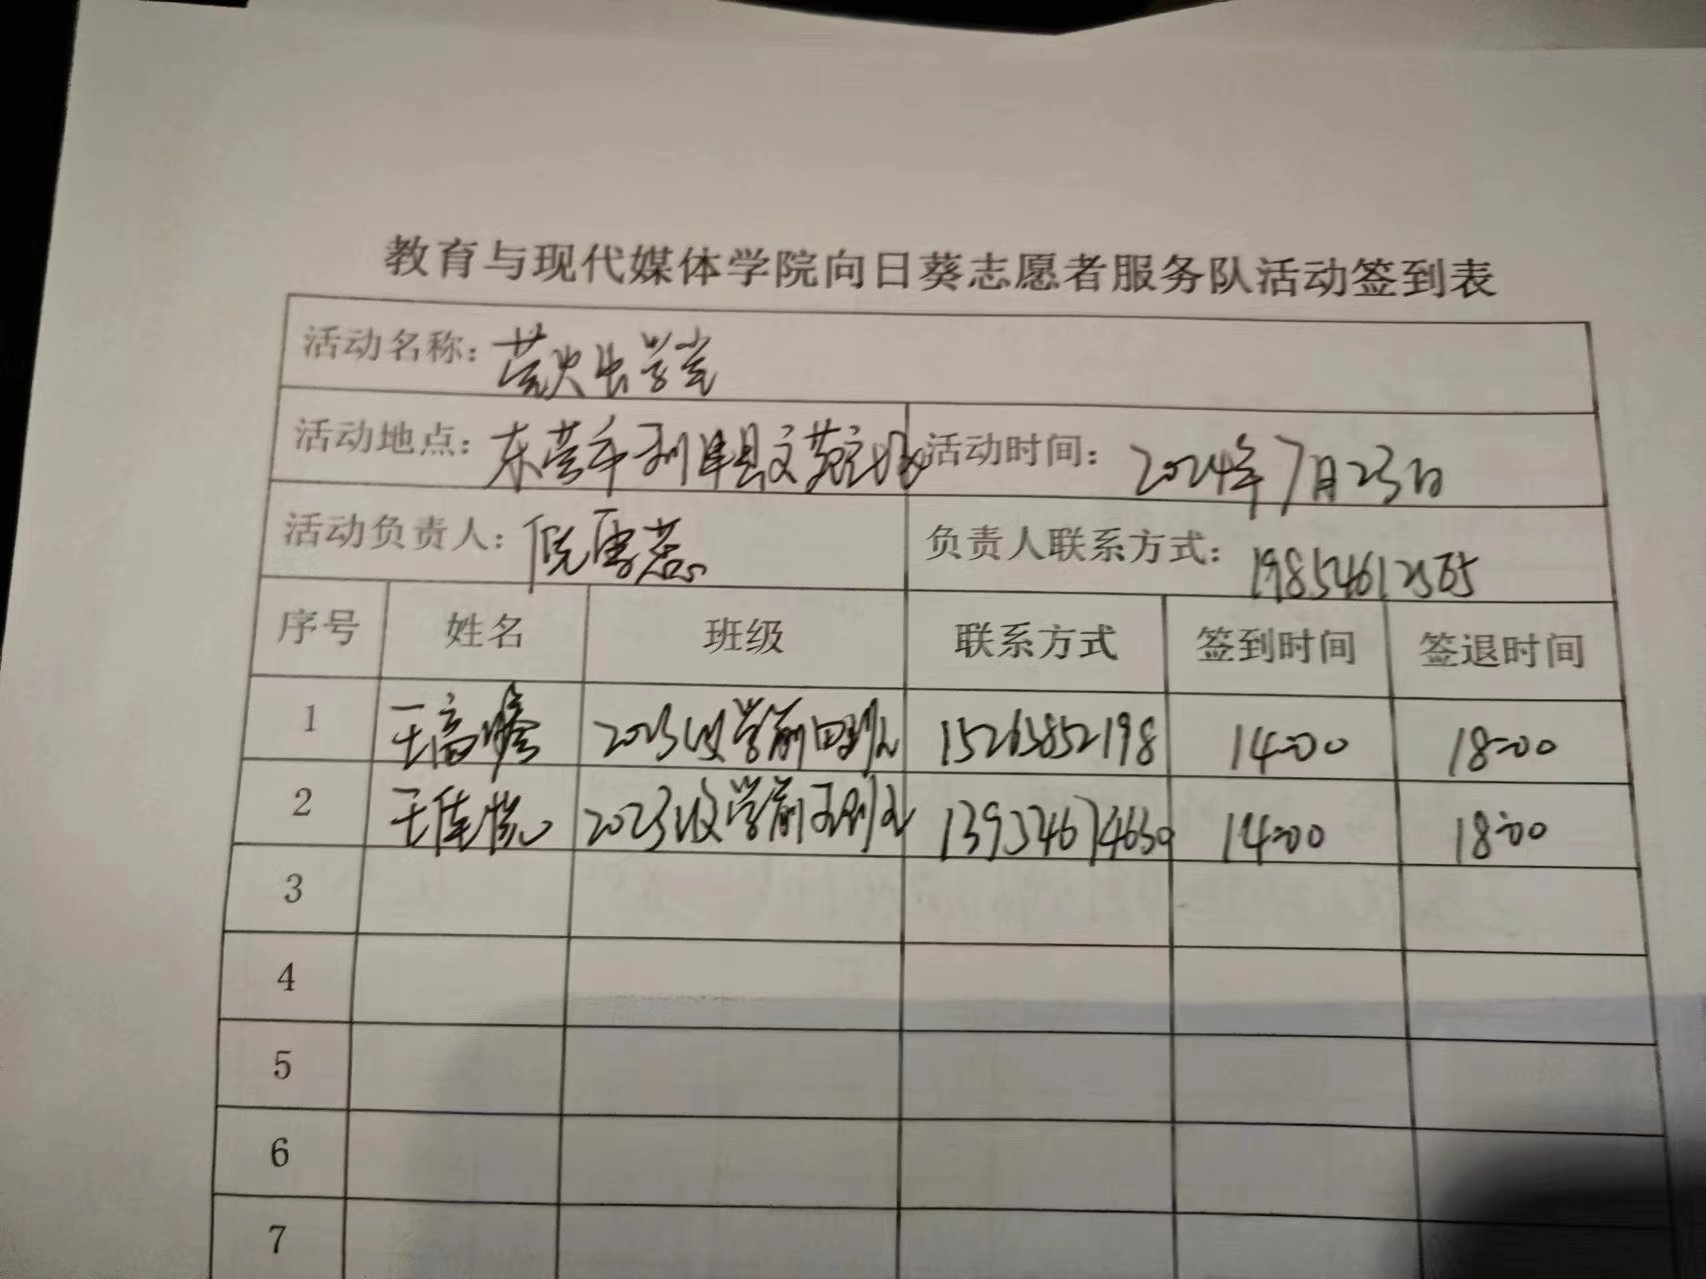 教育与现代媒体学院向日葵志愿者服务队活动签到表
活动名称：萤火虫学堂
活动地点：东营市利津县文苑 活动时间：2024年7月23日
活动负责人：倪雪蕊 负责人联系方式：19852612565
序号 姓名 班级 联系方式 签到时间 签退时间
1 王高 2023级学前四班 15263852198 14:00 18:00
2 王佳悦 2023级学前五班 13934674630 14:00 18:00
3
4
5
6
7